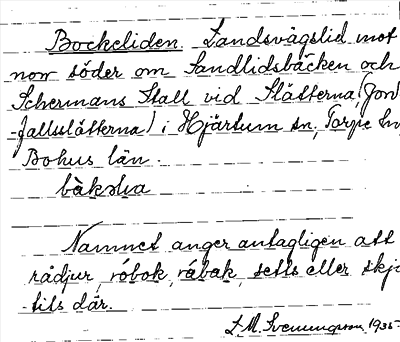 Bockeliden. Landsvägslid mot
norr söder om Sandlidsbäcken och
Schermans Stall vid Slätterna, (Jord
-fallsslätterna) i Hjärtum sn, Torpe hd
Bohus län.
Namnet anger antagligen att
rådjur, róbok, rábak, setts eller skju
-tits där.
L.M. Svenungsson 1935